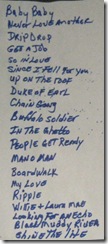 Baby Baby
Never Love Another
Drip Drop
Get A Job
So in Love
Since I Fell For you.
Up on the roof
Duke of Earl
Chain Gang
Buffalo soldier
In the Ghetto
People Get Ready
Man O Man
Boardwalk
My Love
Ripple
Looking For An Echo
Bloody Muddy River
Shine The